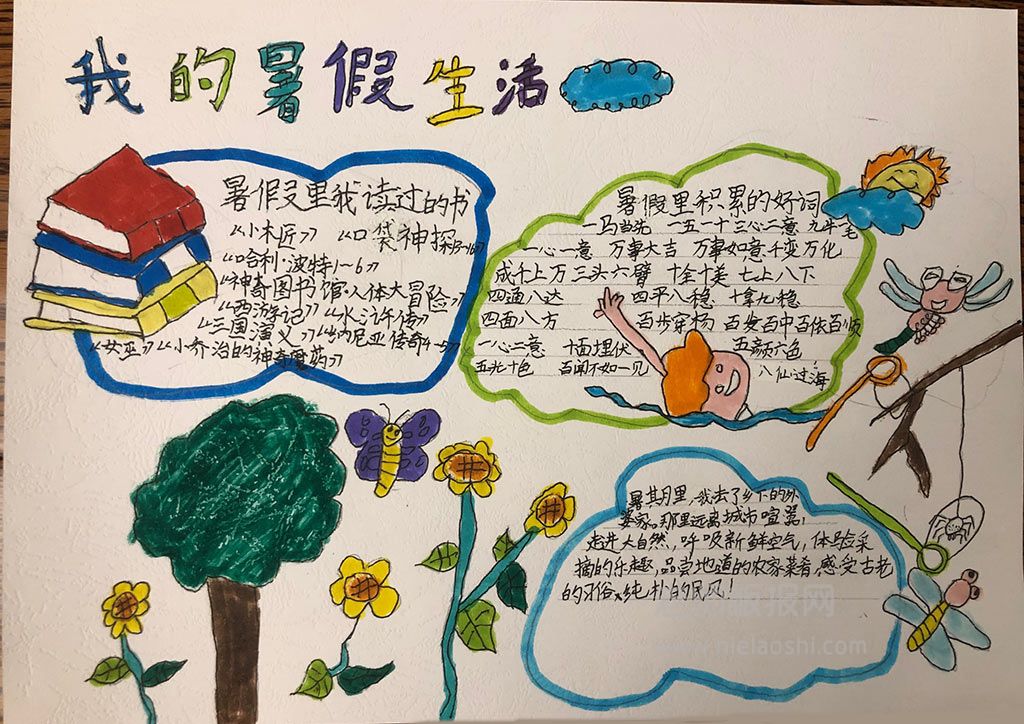 我的暑假生活
暑假里我读过的书
《小木匠》 《口袋神探13-16》
《哈利·波特1-6》
《神奇图书馆·人体大冒险》
《西游记》《水浒传》
《三国演义》《纳尼亚传奇4-5》
《女巫》《小乔治的神奇魔药》
暑假里积累的好词
一马当先 一五一十 三心二意 九牛一毛
一心一意 万事大吉 万事如意 千变万化
成千上万 三头六臂 十全十美 七上八下
四通八达 四平八稳 十拿九稳
四面八方 百步穿杨 百发百中 百依百顺
一心二意 十面埋伏 五颜六色
五光十色 百闻不如一见 八仙过海
暑其月里，我去了乡下的外
婆家。那里远离城市喧嚣，
走进大自然，呼吸新鲜空气，体验采
摘的乐趣，品尝地道的农家菜肴，感受古老
的习俗，纯朴的民风！
板报网
www.nielaoshi.com